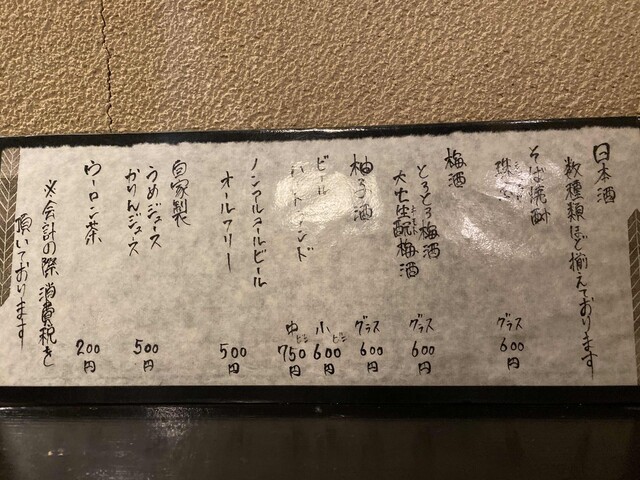 日本酒
数種類ほど揃えております
そば焼酎
珠
グラス
600円
梅酒
とろとろ梅酒
大七生酛梅酒
キモト
グラス
600円
柚子酒
グラス
600円
ビール
ハートランド
小ビン
600円
中ビン
750円
ノンアルコールビール
オールフリー
500円
自家製
うめジュース
かりんジュース
500円
ウーロン茶
200円
※会計の際消費税を
頂いております